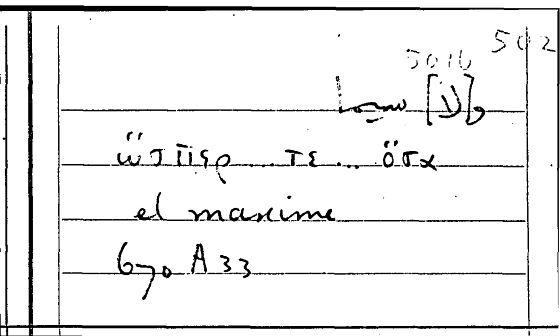 502
5016
و[لا] سيما
ὥσπερ ... τε ... ὅσα
et maxime
670 A 33